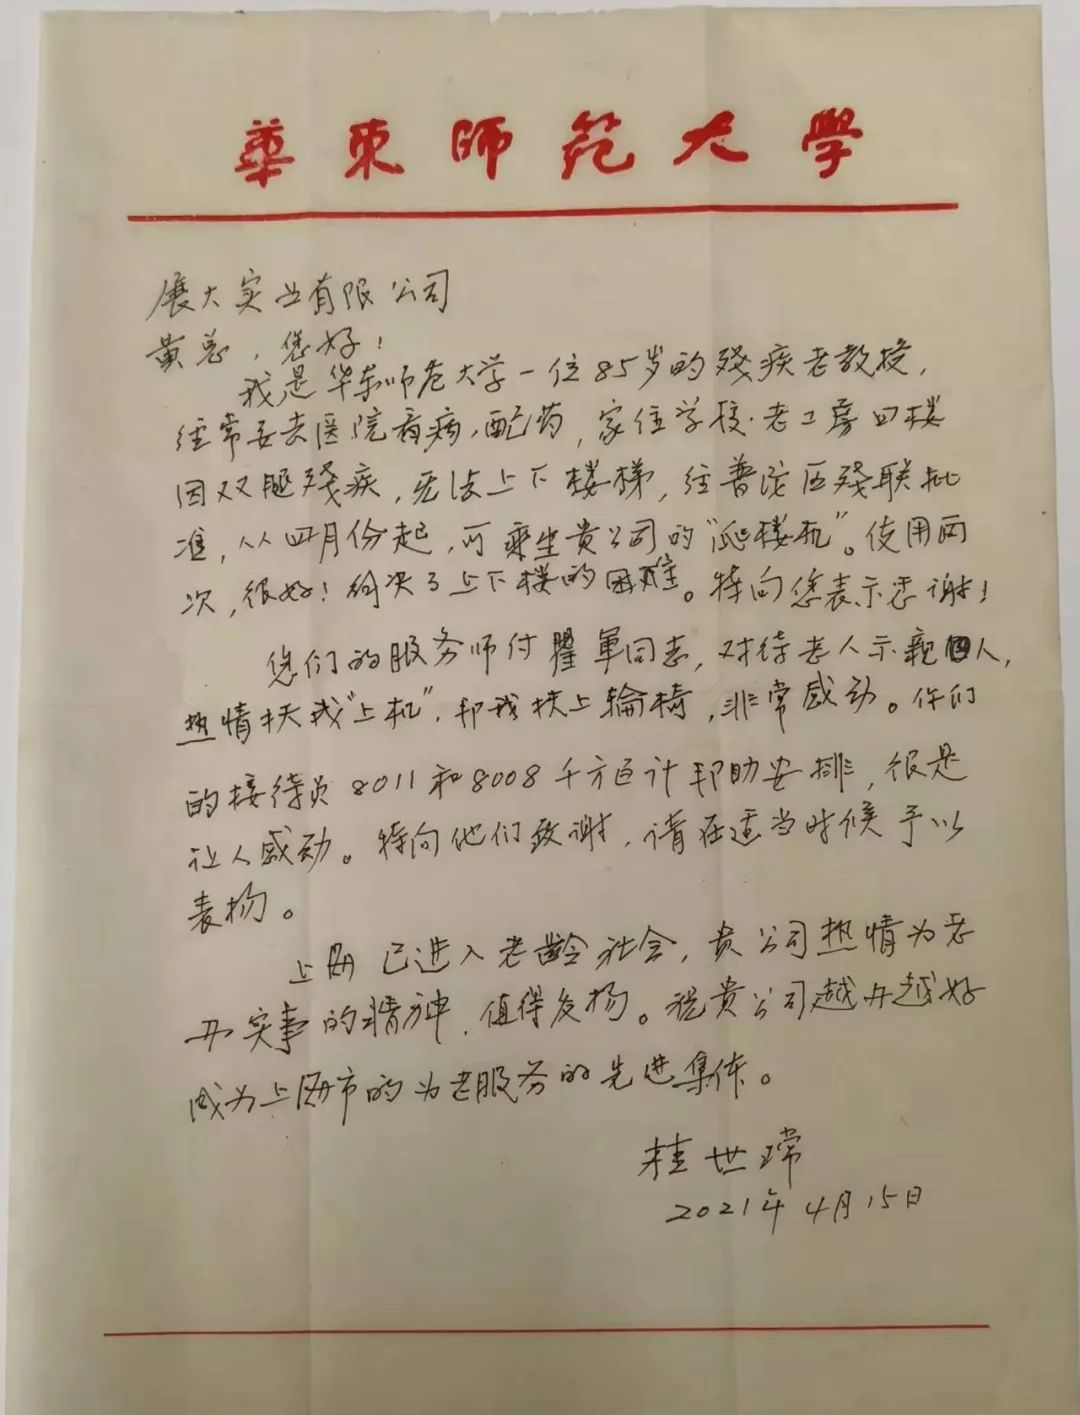 華東師范大學
展大实业有限公司
黄总，您好！
我是华东师范大学一位85岁的残疾老教授，
经常要去医院看病，配药，家住学校老工房四楼
因双腿残疾，无法上下楼梯，经普陀区残联批
准，从四月份起，可乘坐贵公司的“爬楼机”。使用两
次，很好！解决了上下楼的困难。特向您表示感谢！
您们的服务师付瞿軍同志，对待老人示親人，
热情扶我“上机”，帮我扶上輪椅，非常感动。你们
的接待员8011和8008千方百计帮助安排，很是
让人感动。特向他们致谢，请在适当时候予以
表扬。
上海已进入老龄社会，贵公司热情为老
办实事的精神，值得发扬。祝贵公司越办越好
成为上海市的为老服务的先进集体。
桂世
2021年4月15日